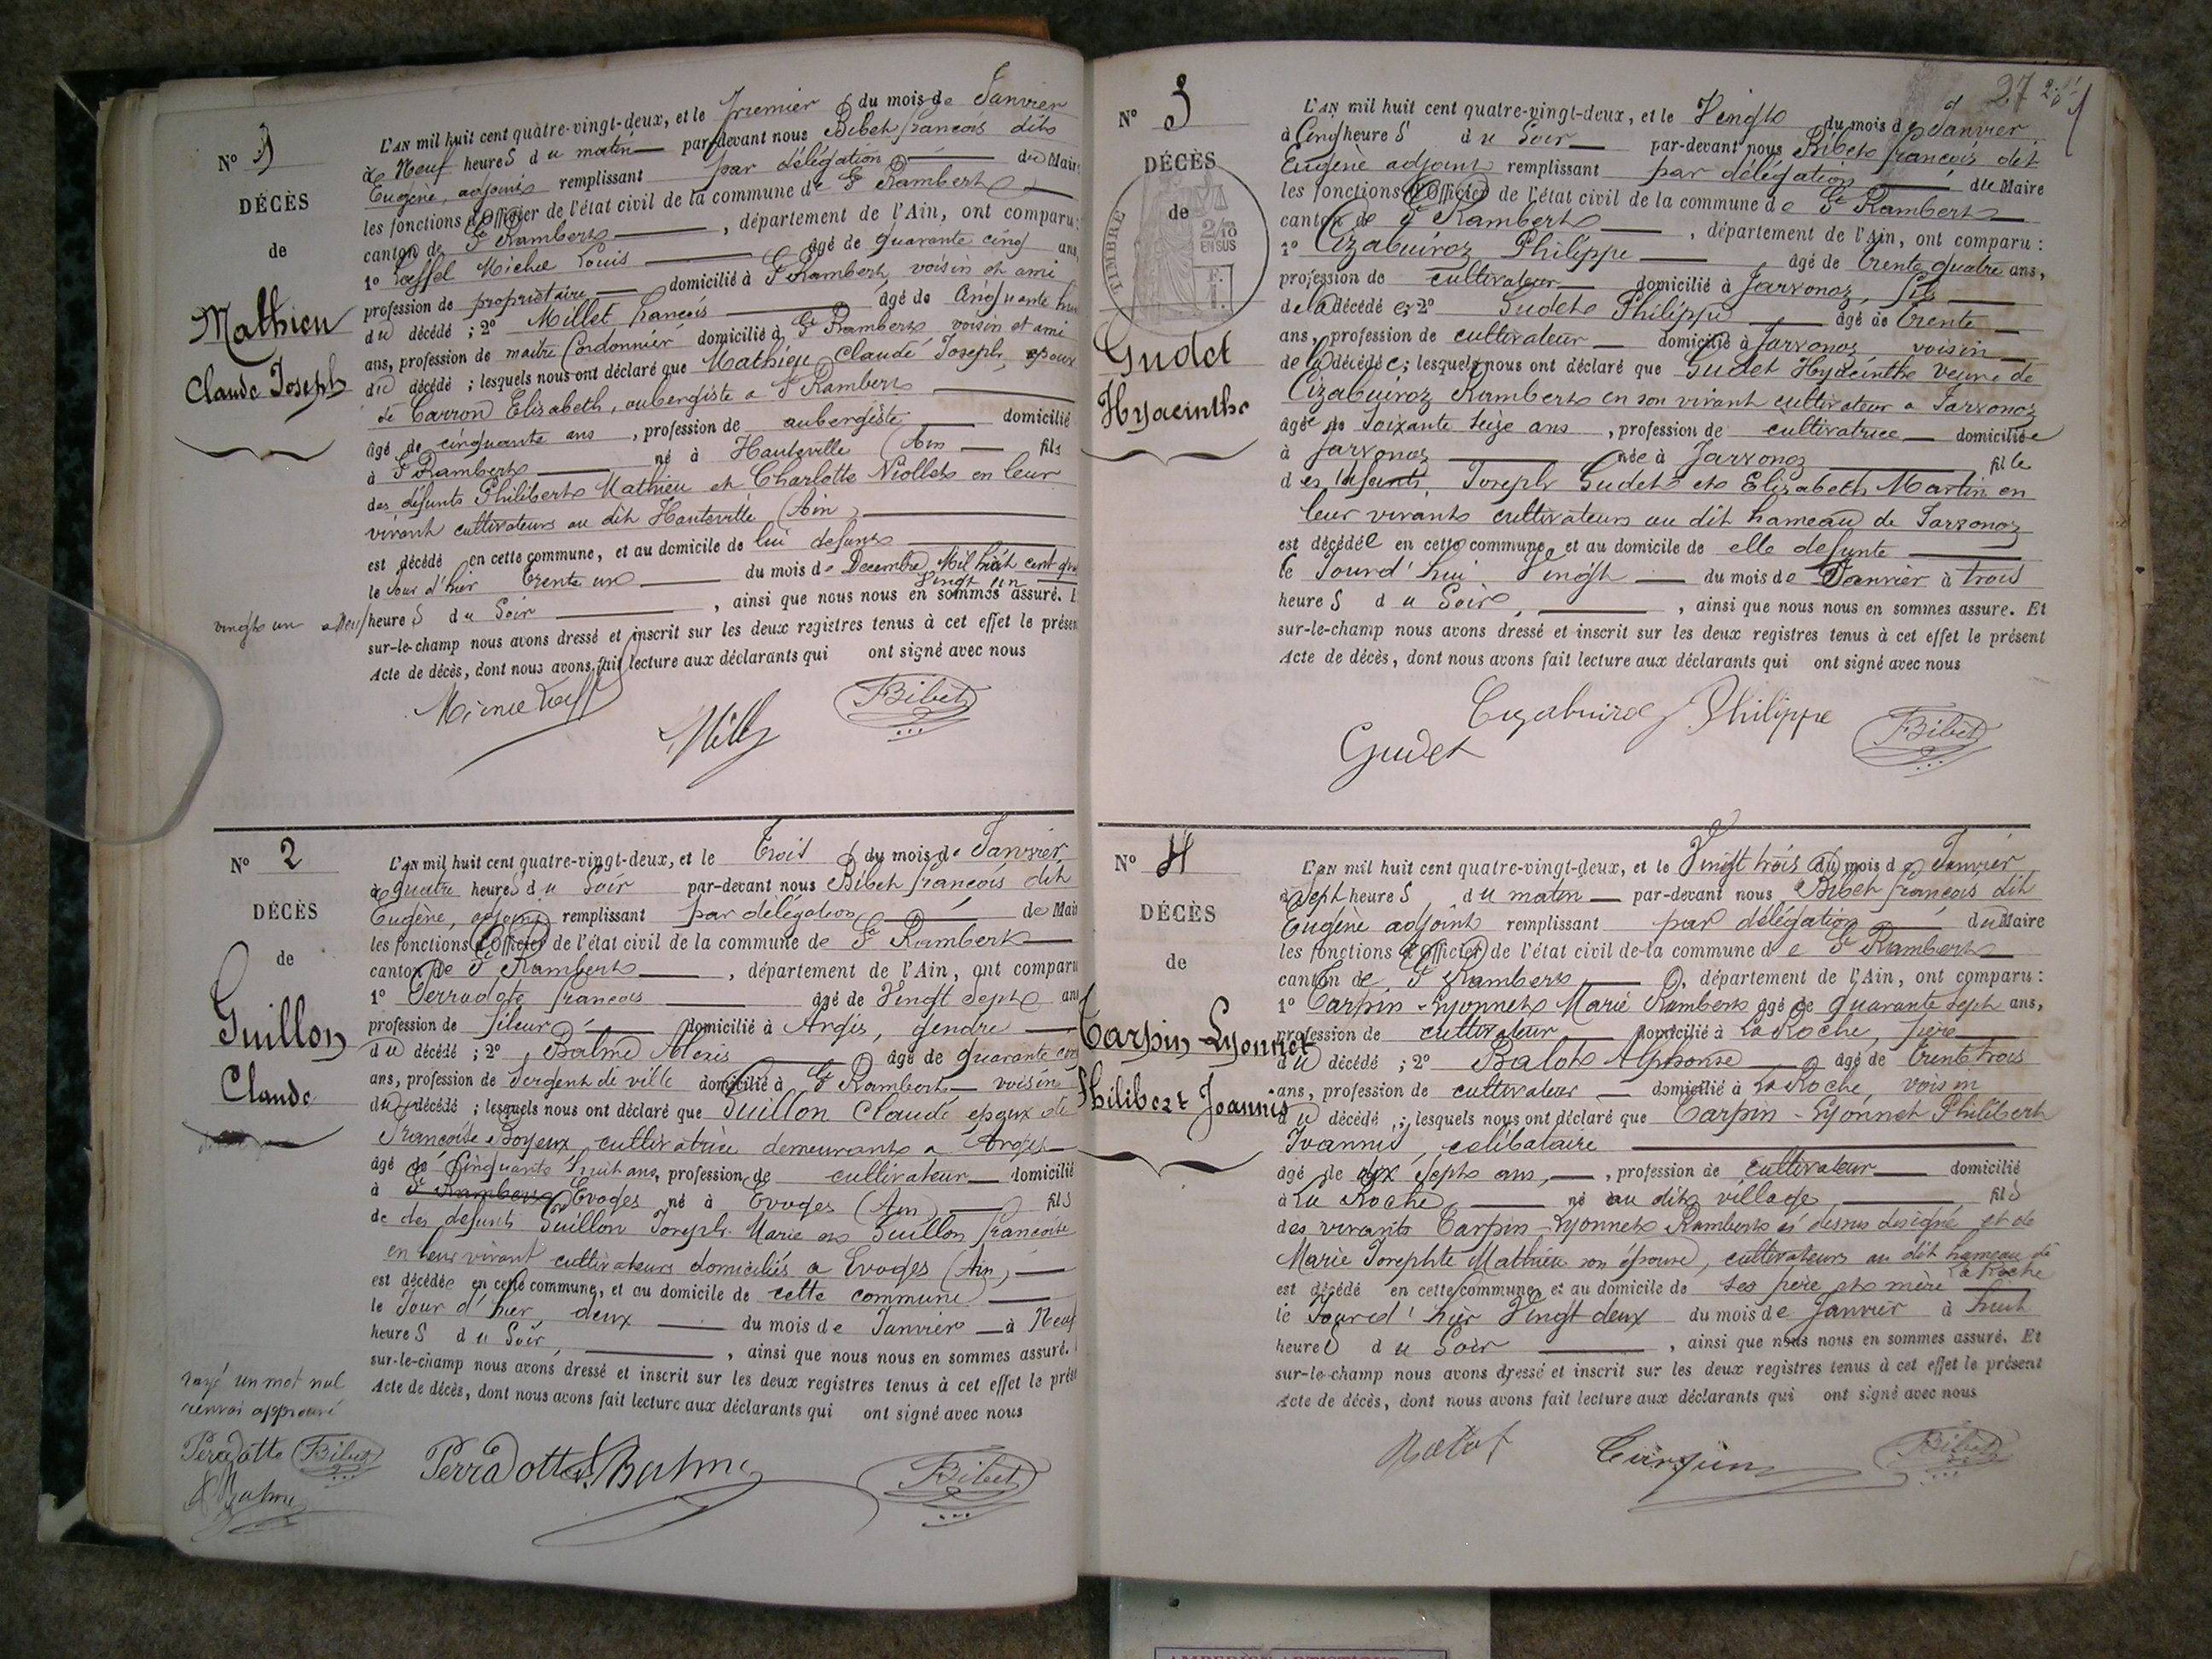 L'AN mil huit cent quatre-vingt-deux, et le premier du mois de Janvier
N° 1
à Neuf heures du matin par-devant nous Bibet françois dit
Eugène, adjoint remplissant par délégation du Maire
DÉCÈS
les fonctions d'Officier de l'état civil de la commune de St Rambert
canton de St Rambert, département de l'Ain, ont comparu :
de
1° Michel Louis âgé de quarante cinq ans,
profession de propriétaire domicilié à St Rambert, voisin et ami
Mathieu
du décédé ; 2° Millet françois âgé de Cinquante huit
ans, profession de maître Cordonnier domicilié à St Rambert voisin et ami
Claude Joseph
du décédé ; lesquels nous ont déclaré que Mathieu Claude Joseph, époux
de Carron Elisabeth, aubergiste a St Rambert
âgé de cinquante ans, profession de aubergiste domicilié
à St Rambert né à Hauteville (Ain fils
des défunts Philibert Mathieu et Charlotte Niollet en leur
vivant cultivateurs au dit Hauteville (Ain)
est décédé en cette commune, et au domicile de lui defunt
le Jour d'hier trente un du mois de Decembre Mil huit cent
vingt un
heures du Soir, ainsi que nous nous en sommes assuré.
sur-le-champ nous avons dressé et inscrit sur les deux registres tenus à cet effet le présent
Acte de décès, dont nous avons fait lecture aux déclarants qui ont signé avec nous
Bibet
N° 2
L'AN mil huit cent quatre-vingt-deux, et le Trois du mois de Janvier
à quatre heures du Soir par-devant nous Bibet françois dit
DÉCÈS
Eugène, adjoint remplissant par délégation de Maire
les fonctions d'Officier de l'état civil de la commune de St Rambert
de
canton de St Rambert, département de l'Ain, ont comparu
1° Perradote françois âgé de Vingt Sept ans
Guillon
profession de fileur domicilié à Argis, gendre
du décédé ; 2° Balme Alexis âgé de quarante
Claude
ans, profession de Sergent de ville domicilié à St Rambert voisin
du décédé ; lesquels nous ont déclaré que Guillon Claude époux de
Françoise Boyeux, cultivatrice demeurant a Argis
âgé de Cinquante huit ans, profession de cultivateur domicilié
à St Rambert Evoges né à Evoges (Ain) fils
de des defunts Guillon Joseph Marie et Guillon françoise
en leur vivant cultivateurs domiciliés a Evoges (Ain)
est décédé en cette commune, et au domicile de cette commune
le Jour d'hier deux du mois de Janvier à Neuf
heures du Soir, ainsi que nous nous en sommes assuré.
sur-le-champ nous avons dressé et inscrit sur les deux registres tenus à cet effet le présent
Acte de décès, dont nous avons fait lecture aux déclarants qui ont signé avec nous
rayé un mot nul
renvoi approuvé
Peradotte Bibet
Balme
Perradotte Balme Bibet
27
N° 3
L'AN mil huit cent quatre-vingt-deux, et le Vingt du mois de Janvier
à Cinq heures du Soir par-devant nous Bibet françois dit
DÉCÈS
Eugène adjoint remplissant par délégation du Maire
les fonctions d'Officier de l'état civil de la commune de St Rambert
de
canton de St Rambert, département de l'Ain, ont comparu :
TIMBRE
EN SUS
1° Cizabuiroz Philippe âgé de trente quatre ans,
profession de cultivateur domicilié à Javronoz, fils
de la décédée 2° Gudet Philippe âgé de trente
ans, profession de cultivateur domicilié à Javronoz voisin
Gudet
de la décédée ; lesquels nous ont déclaré que Gudet Hyacinthe veuve de
Hyacinthe
Cizabuiroz Rambert en son vivant cultivateur a Javronoz
âgée de Soixante seize ans, profession de cultivatrice domiciliée
à Javronoz née à Javronoz fille
des défunts, Joseph Gudet et Elisabeth Martin en
leur vivant cultivateurs au dit hameau de Javronoz
est décédée en cette commune, et au domicile de elle defunte
le Jourd'hui Vingt du mois de Janvier à trois
heures du Soir, ainsi que nous nous en sommes assuré. Et
sur-le-champ nous avons dressé et inscrit sur les deux registres tenus à cet effet le présent
Acte de décès, dont nous avons fait lecture aux déclarants qui ont signé avec nous
Philippe
Gudet
Bibet
N° 4
L'AN mil huit cent quatre-vingt-deux, et le Vingt trois du mois de Janvier
à Sept heures du matin par-devant nous Bibet françois dit
DÉCÈS
Eugène adjoint remplissant par délégation du Maire
les fonctions d'Officier de l'état civil de la commune de St Rambert
de
canton de St Rambert, département de l'Ain, ont comparu :
1° Carpin-Lyonnet Marie Rambert âgé de quarante sept ans,
Carpin-Lyonnet
profession de cultivateur domicilié à La Roche, père
du décédé ; 2° Balot Alphonse âgé de trente trois
Philibert Joannis
ans, profession de cultivateur domicilié à La Roche, voisin
du décédé ; lesquels nous ont déclaré que Carpin-Lyonnet Philibert
Joannis, célibataire
âgé de dix Sept ans, profession de Cultivateur domicilié
à La Roche né au dit village fils
des vivants Carpin-Lyonnet Rambert ci dessus designé, et de
Marie Josephte Mathieu son épouse, cultivateurs au dit hameau de
La Roche
est décédé en cette commune, et au domicile de ses père et mère
le Jourd'hier Vingt deux du mois de Janvier à huit
heures du Soir, ainsi que nous nous en sommes assuré. Et
sur-le-champ nous avons dressé et inscrit sur les deux registres tenus à cet effet le présent
Acte de décès, dont nous avons fait lecture aux déclarants qui ont signé avec nous
Balot Carpin Bibet